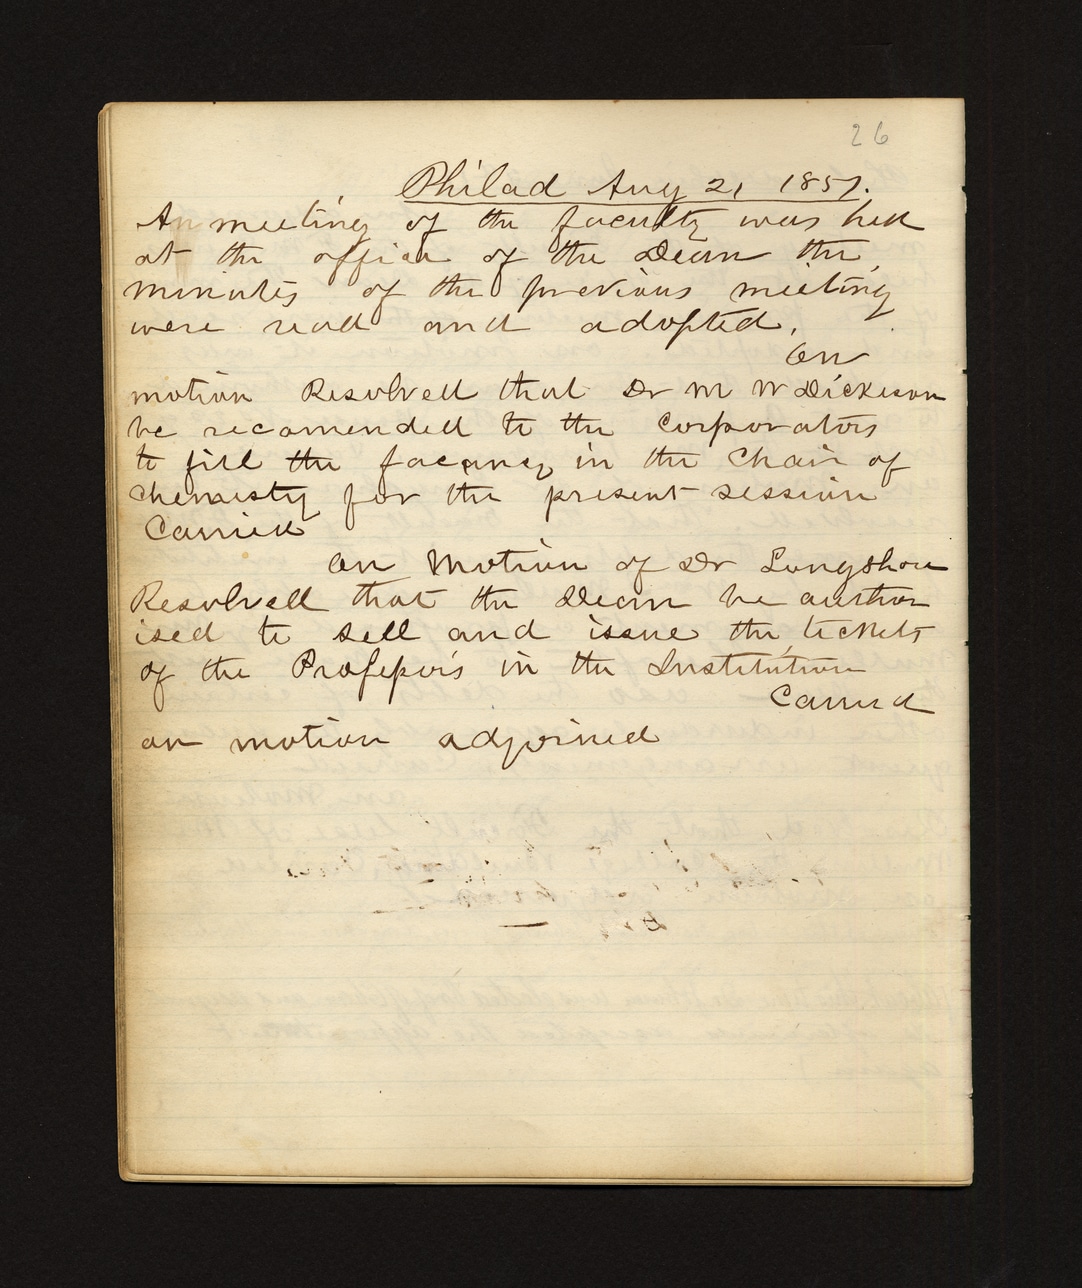 26
Philad Aug 21 1851.
An meeting of the faculty was held
at the office of the Dean the
minutes of the previous meeting
were read and adopted.
On
motion Resolved that Dr M W Dickeson
be recomended to the Corporators
to fill the facancy in the Chair of
Chemisty for the present session
Carried
On Motion of Dr Longshore
Resolved that the Dean be author
ised to sell and issue the tickets
of the Professors in the Institution
Carried
on motion adjorined